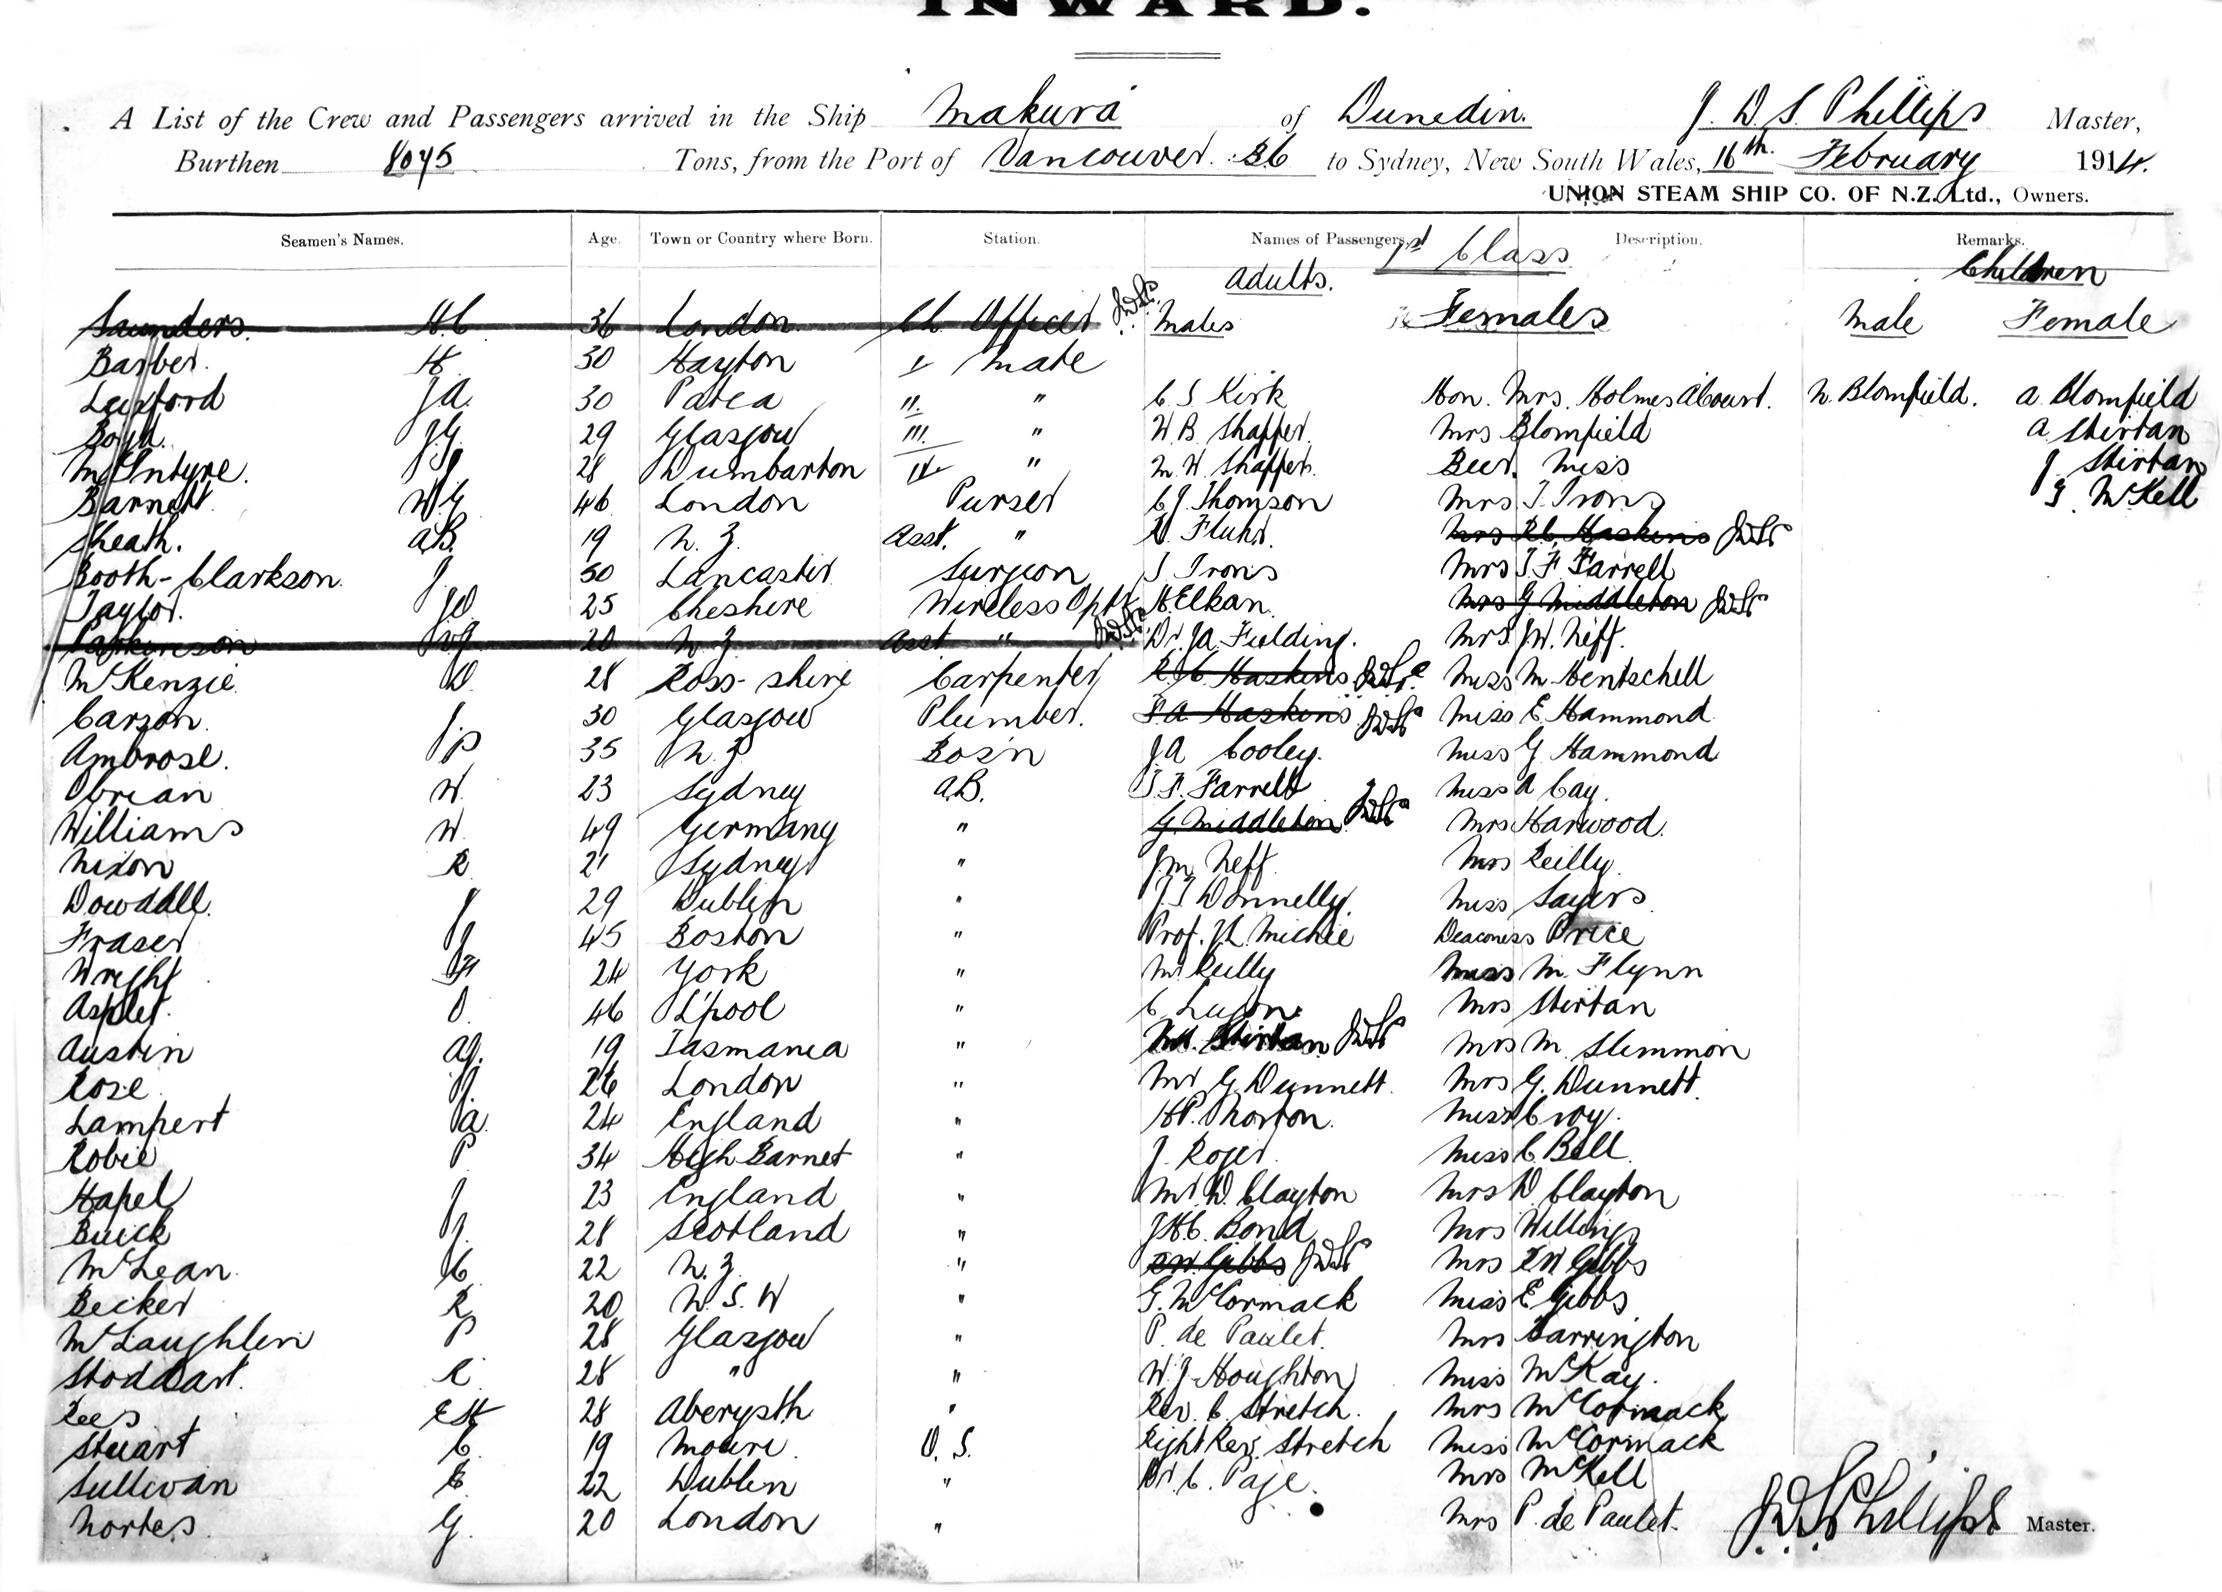 INWARD.
A List of the Crew and Passengers arrived in the Ship Makura of Dunedin. J. D. S. Phillips Master,
Burthen 8075 Tons, from the Port of Vancouver B6 to Sydney, New South Wales, 16th February 1914.
UNION STEAM SHIP CO. OF N.Z. Ltd., Owners.
Seamen's Names. Age. Town or Country where Born. Station. Names of Passengers. 1st Class Description. Remarks.
Adults. Children
Saunders. H.C 36 London Ch Officer JDSP Males Females Male Female
Barber. H 30 Hayton I Mate
Luxford JA. 30 Patea II. " C S Kirk Hon. Mrs. Holmes ACourt. N. Blomfield. A Blomfield
Boyd. J.G. 29 Glasgow III. " W B Shaffer. Mrs Blomfield A Stirtan
McIntyre. J 28 Dumbarton IV " M W Shaffer. Beer. Miss J Stirtan
Barnett. W.G 46 London Purser C J Thomson Mrs T. Irons G McKell
Sheath. A.B. 19 N. Z. Asst. " Fluhr. Mrs R.C. Haskins JDSP
Booth-Clarkson J 50 Lancaster Surgeon T Irons Mrs T. F Farrell
Taylor. JD 25 Cheshire Wireless Optr H Elkan. Mrs G Middleton JDSP
Parkinson WJ 20 N. Z Asst " JDSP Dr. JA. Fielding. Mrs JW. Neff.
McKenzie D. 28 Ross-shire Carpenter R. C. Haskins JDSP Miss M Hentschell
Carson. J 30 Glasgow Plumber. F. A Haskins JDSP Miss E Hammond
Ambrose. JP 35 N. Z Bos'n JA Cooley. Miss G Hammond
Obrian W. 23 Sydney A.B. T. F. Farrell Miss A Cay.
Williams W. 49 Germany " G. Middleton JDSP Mrs Harwood.
Nixon R 21 Sydney " J.M. Neff. Mrs Reilly
Dowdall. J 29 Dublin " J. T Donnelly. Miss Sayers
Fraser J 45 Boston " Prof. J.L. Michie Deaconess Price
Wright F 24 York " M. Reilly Miss M. Flynn
Asplet. O. 46 L'pool " C. Mrs Stirtan
Austin AJ. 19 Tasmania " Mr. Stirtan JDSP Mrs M. Slimmon
Rose J. 26 London " Mr G Dunnett. Mrs G. Dunnett.
Lampert A. 24 England " H.P. Norton. Miss Croy.
Robie P 34 High Barnet " J. Roger. Miss C. Bell.
Hapel J. 23 England " Mr D. Clayton Mrs D Clayton
Buick J. 28 Scotland " J.H.C. Bond Mrs Willings
McLean C 22 N. Z. " E W. Gibbs JDSP Mrs E W Gibbs
Becker R 20 N. S. W " G. McCormack Miss E Gibbs
McLaughlin P 28 Glasgow " P. de Paulet. Mrs Barrington
Stoddart. R. 28 " " W. J. Houghton Miss McKay.
Rees EH 28 Aberysth " Rev. C Stretch. Mrs McCormack
Stuart C. 19 Mouri O. S. Right Rev. Stretch Miss McCormack
Sullivan E. 22 Dublin " Dr. C. Page. Mrs McKell
Nortes G. 20 London " Mrs P. de Paulet. JDSPhillips Master.